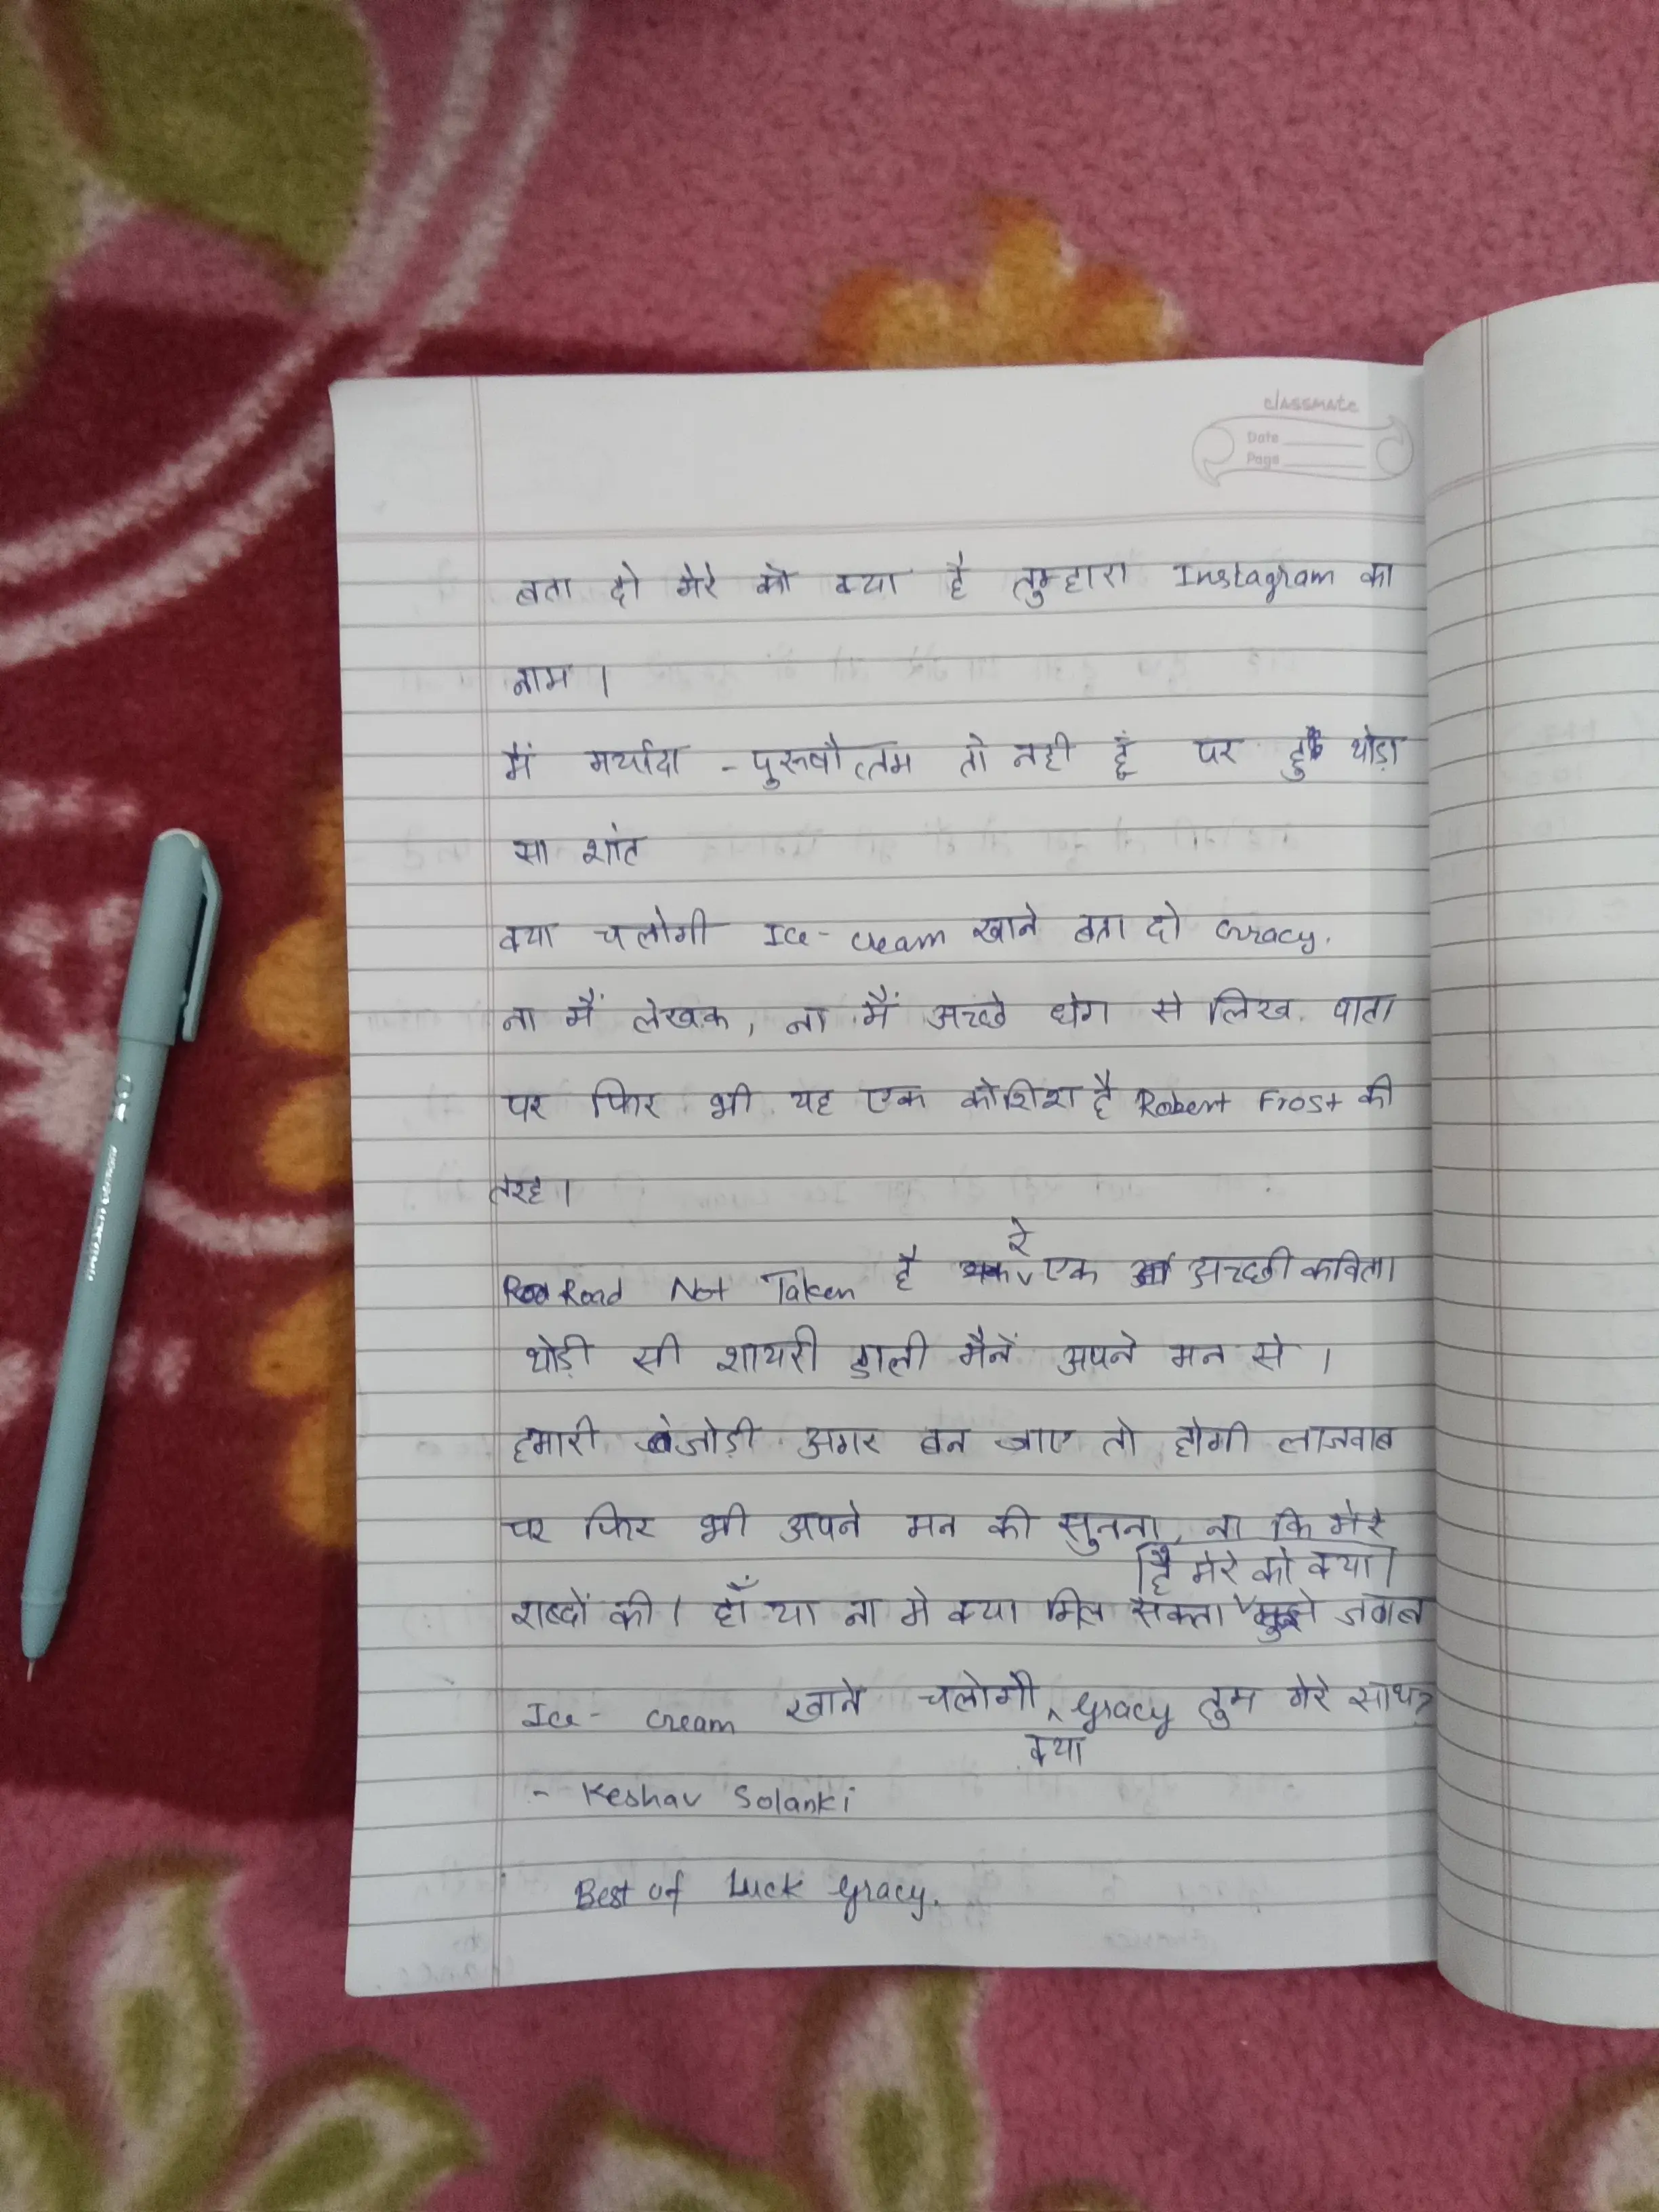 classmate
Date
Page
बता दो मेरे को क्या है तुम्हारा Instagram का
नाम ।
मैं मर्यादा - पुरुषौत्तम तो नही हूं पर हु थोड़ा
सा शांत
क्या चलोगी Ice - cream खाने बता दो Gracy.
ना मैं लेखक, ना मैं अच्छे धंग से लिख पाता
पर फिर भी यह एक कोशिश है Robert Frost की
तरह ।
रे
Road Not Taken है एक अच्छी कविता
थोड़ी सी शायरी डाली मैनें अपने मन से ।
हमारी जोड़ी अगर बन जाए तो होगी लाजवाब
पर फिर भी अपने मन की सुनना, ना कि मेरे
है मेरे को क्या
शब्दों की । हाँ या ना मे क्या मिल सकता जवाब
Ice - cream खाने चलोगी Gracy तुम मेरे साथ?
क्या
- Keshav Solanki
Best of Luck Gracy.